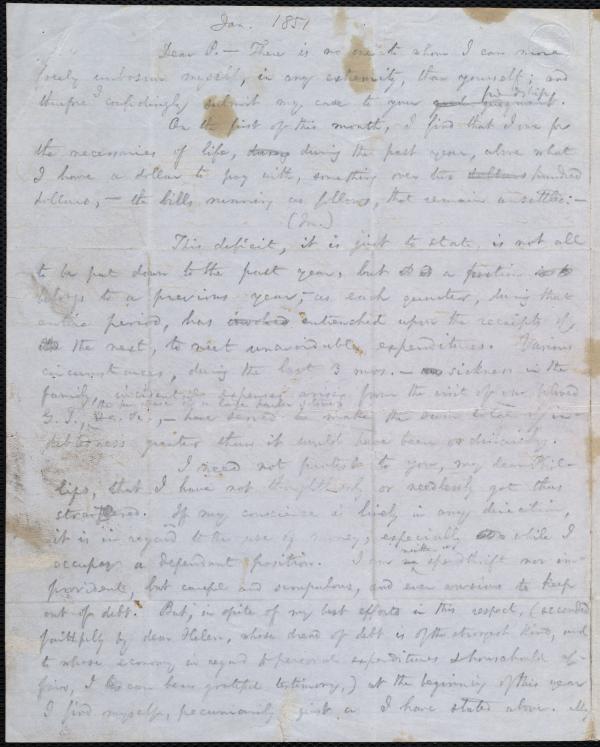 Jan. 1851
Dear P. — There is no one to whom I can more
freely unbosom myself, in any extremity, than yourself; and
therefore I confidingly submit my case to your friendship.
On the first of this month, I find that I owe for
the necessaries of life, during the past year, above what
I have a dollar to pay with, something over two hundred
dollars, — the bills running as follows, that remain unsettled: —
This deficit, it is just to state, is not all
to be put down to the past year, but a portion
belongs to a previous year, — as each quarter, during that
entire period, has entrenched upon the receipts of
the next, to meet unavoidable expenditures. Various
circumstances, during the last 3 mos. — sickness in the
family, incidental expenses arising from the visit of our beloved
G. T., &c. &c., — have served to make the sum total of in-
debtedness greater than it would have been ordinarily.
I need not protest to you, my dear Phil-
lips, that I have not thoughtlessly or needlessly got thus
straitened. If my conscience is lively in any direction,
it is in regard to the use of money, especially while I
occupy a dependant position. I am neither spendthrift nor im-
provident, but careful and scrupulous, and even anxious to keep
out of debt. But, in spite of my best efforts in this respect, (seconded
faithfully by dear Helen, whose dread of debt is of the strongest kind, and
to whose economy in regard to personal expenditures & household af-
fairs, I can bear grateful testimony,) at the beginning of this year
I find myself, pecuniarily, just as I have stated above. My